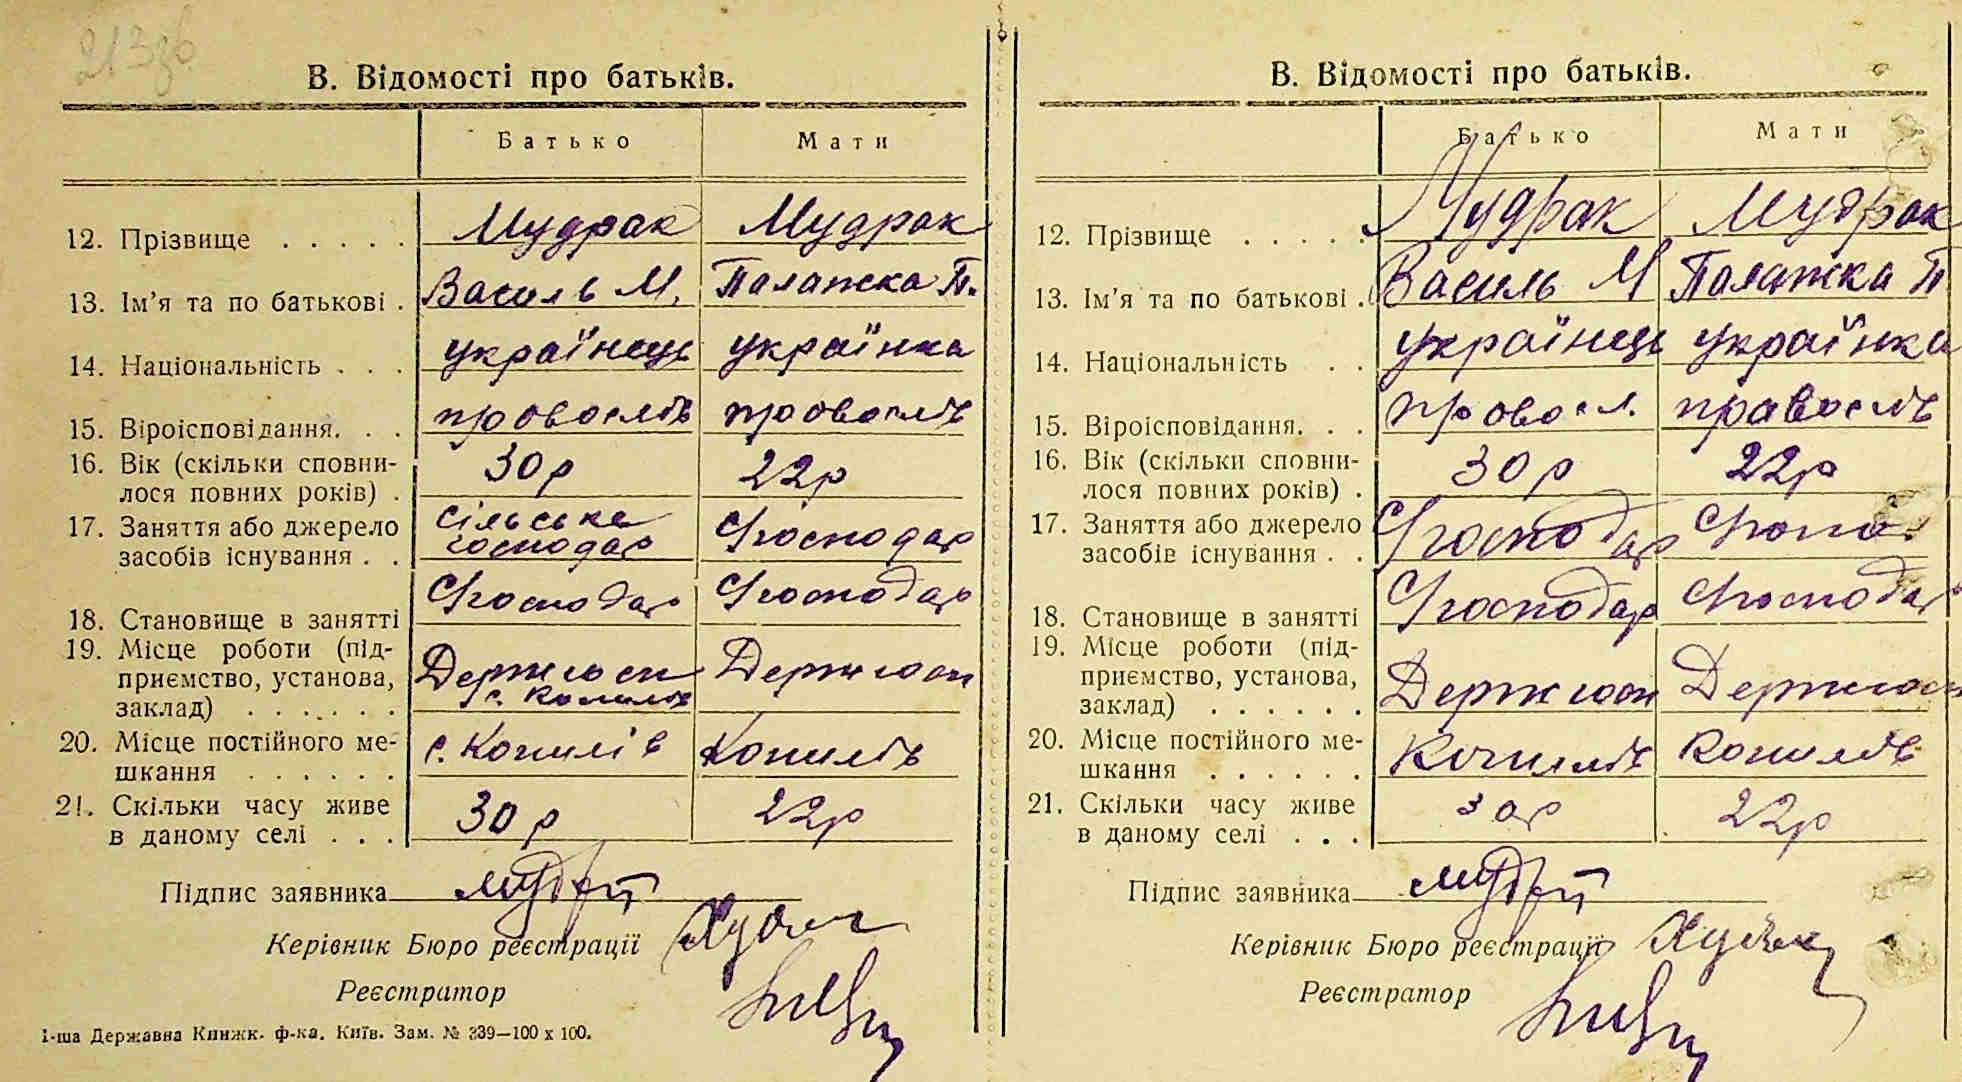 213зв
В. Відомості про батьків.
Батько Мати
12. Прізвище . . . . . Мудрак Мудрак
13. Ім'я та по батькові . Василь М. Палажка П.
14. Національність . . . українець українка
15. Віроісповідання. . . провослів провослів
16. Вік (скільки сповни- 30 р 22 р
лося повних років) .
17. Заняття або джерело сільське Господар
засобів існування . . господар
18. Становище в занятті Господар Господар
19. Місце роботи (під-
приємство, установа, Держгосп Держгосп
заклад) . . . . . . с. Копилів
20. Місце постійного ме- с. Копилів Копилів
шкання . . . . . .
21. Скільки часу живе 30 р 22р
в даному селі . . .
Підпис заявника
Керівник Бюро реєстрації
Реєстратор
1-ша Державна Книжк. ф-ка. Київ. Зам. № 339—100 х 100.
В. Відомості про батьків.
Батько Мати
12. Прізвище . . . . . Мудрак Мудрак
13. Ім'я та по батькові . Василь М Палажка П
14. Національність . . українець українка
15. Віроісповідання. . . провосл. православ
16. Вік (скільки сповни- 30 р 22р
лося повних років) .
17. Заняття або джерело Господар
засобів існування . .
18. Становище в занятті Господар Господар
19. Місце роботи (під-
приємство, установа, Держгосп Держгосп
заклад) . . . . . .
20. Місце постійного ме- Копилів Копилів
шкання . . . . . .
21. Скільки часу живе 30р 22р
в даному селі . . .
Підпис заявника
Керівник Бюро реєстрації
Реєстратор